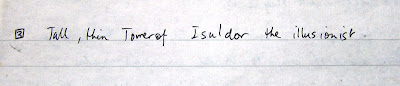 3 Tall, thin Tower of Isuldor the illusionist.